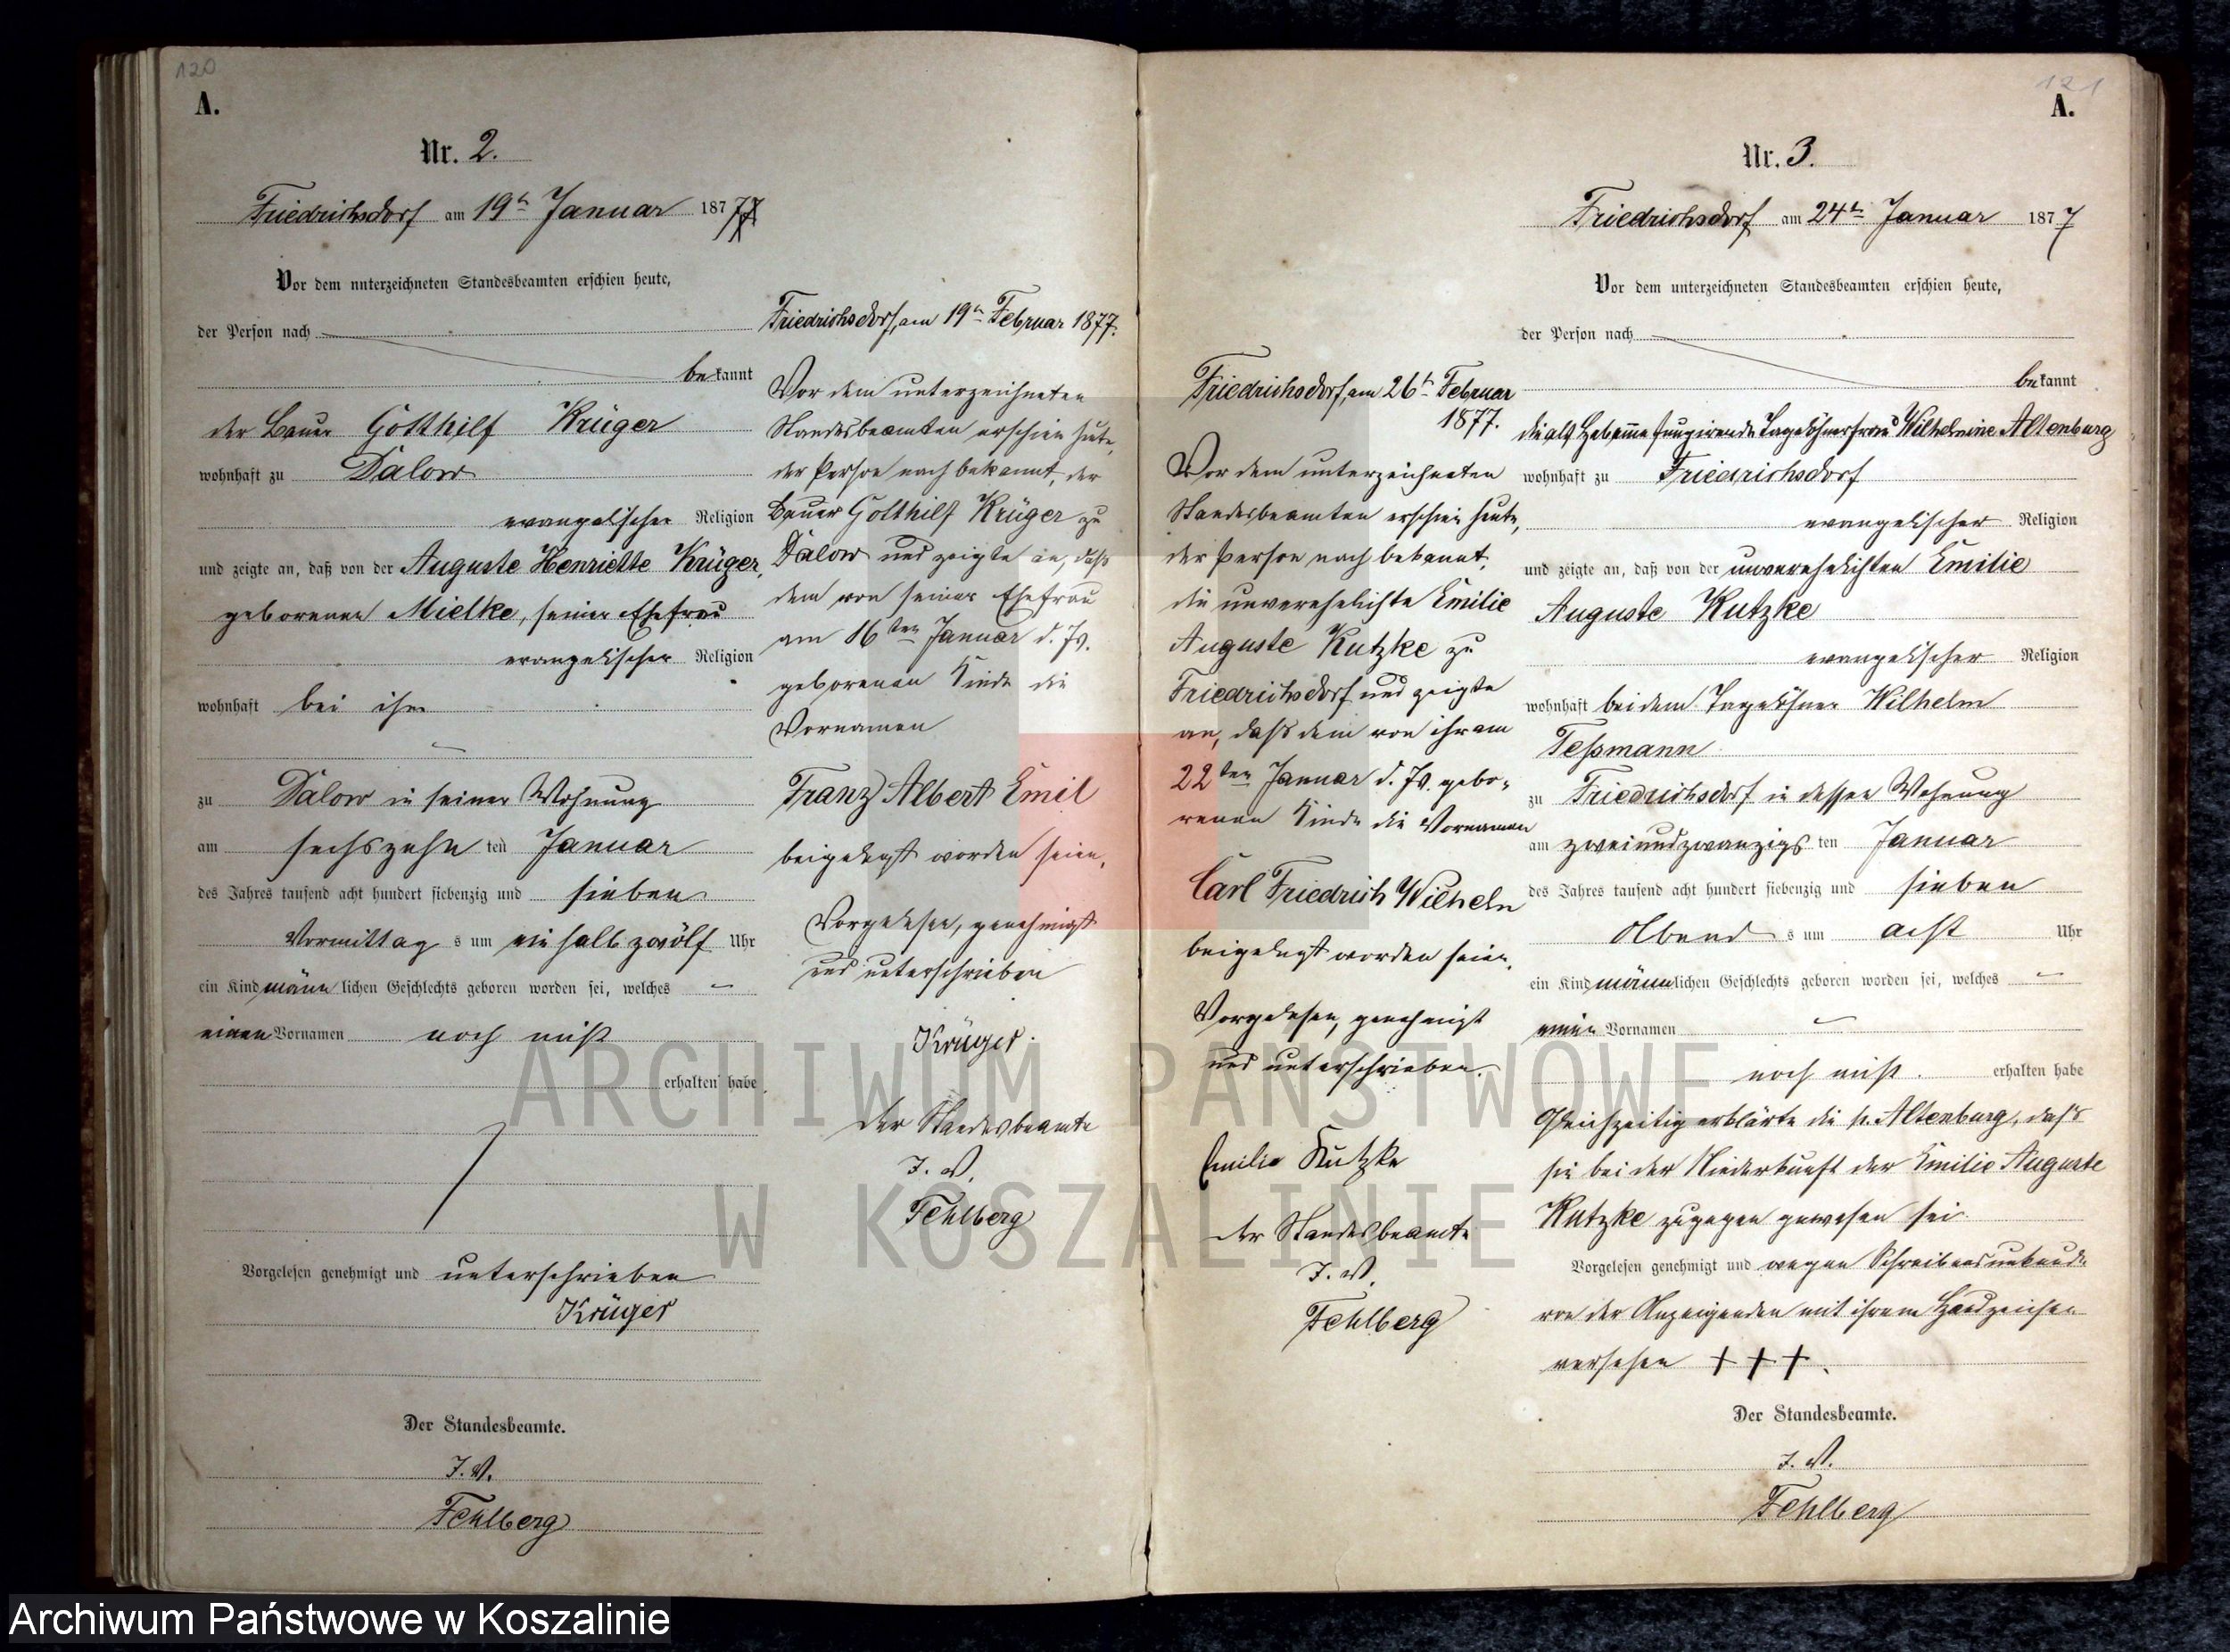 120
A.
Nr. 2.
Friedrichsdorf am 19ten Januar 1877
Vor dem unterzeichneten Standesbeamten erschien heute,
der Person nach
bekannt
der Bauer Gotthilf Krüger
wohnhaft zu Dalow
evangelischer Religion
und zeigte an, daß von der Auguste Henriette Krüger,
geborenen Mielke, seiner Ehefrau
evangelischer Religion
wohnhaft bei ihm
zu Dalow in seiner Wohnung
am sechszehn ten Januar
des Jahres tausend acht hundert siebenzig und sieben
Vormittag s um ein halb zwölf Uhr
ein Kind männlichen Geschlechts geboren worden sei, welches
einen Vornamen noch nicht
erhalten habe
Vorgelesen genehmigt und unterschrieben
Krüger
Der Standesbeamte.
I. V.
Fehlberg
Friedrichsdorf, am 19ten Februar 1877.
Vor dem unterzeichneten
Standesbeamten erschien heute,
der Person nach bekannt, der
Bauer Gotthilf Krüger zu
Dalow und zeigte an, daß
dem von seiner Ehefrau
am 16ten Januar d. Js.
geborenen Kinde die
Vornamen
Franz Albert Emil
beigelegt worden seien.
Vorgelesen, genehmigt
und unterschrieben
Krüger.
Der Standesbeamte
I. V.
Fehlberg
121
A.
Nr. 3.
Friedrichsdorf am 24ten Januar 1877
Vor dem unterzeichneten Standesbeamten erschien heute,
der Person nach
bekannt
die als Hebamme fungirende Tagelöhnerfrau Wilhelmine Altenburg
wohnhaft zu Friedrichsdorf
evangelischer Religion
und zeigte an, daß von der unverehelichten Emilie
Auguste Kutzke
evangelischer Religion
wohnhaft bei dem Tagelöhner Wilhelm
Teßmann
zu Friedrichsdorf in dessen Wohnung
am zweiundzwanzigs ten Januar
des Jahres tausend acht hundert siebenzig und sieben
Abend s um acht Uhr
ein Kind männlichen Geschlechts geboren worden sei, welches
einen Vornamen
noch nicht. erhalten habe
Gleichzeitig erklärte die p. Altenburg, daß
sie bei der Niederkunft der Emilie Auguste
Kutzke zugegen gewesen sei.
Vorgelesen genehmigt und wegen Schreibensunkunde
von der Anzeigenden mit ihrem Handzeichen
versehen + + +.
Der Standesbeamte.
I. V.
Fehlberg
Friedrichsdorf, am 26ten Februar
1877.
Vor dem unterzeichneten
Standesbeamten erschien heute,
der Person nach bekannt,
die unverehelichte Emilie
Auguste Kutzke zu
Friedrichsdorf und zeigte
an, daß dem von ihr am
22ten Januar d. Js. gebo-
renen Kinde die Vornamen
Carl Friedrich Wilhelm
beigelegt worden seien.
Vorgelesen, genehmigt
und unterschrieben.
Emilie Kutzke
Der Standesbeamte
I. V.
Fehlberg
ARCHIWUM PAŃSTWOWE
W KOSZALINIE
Archiwum Państwowe w Koszalinie